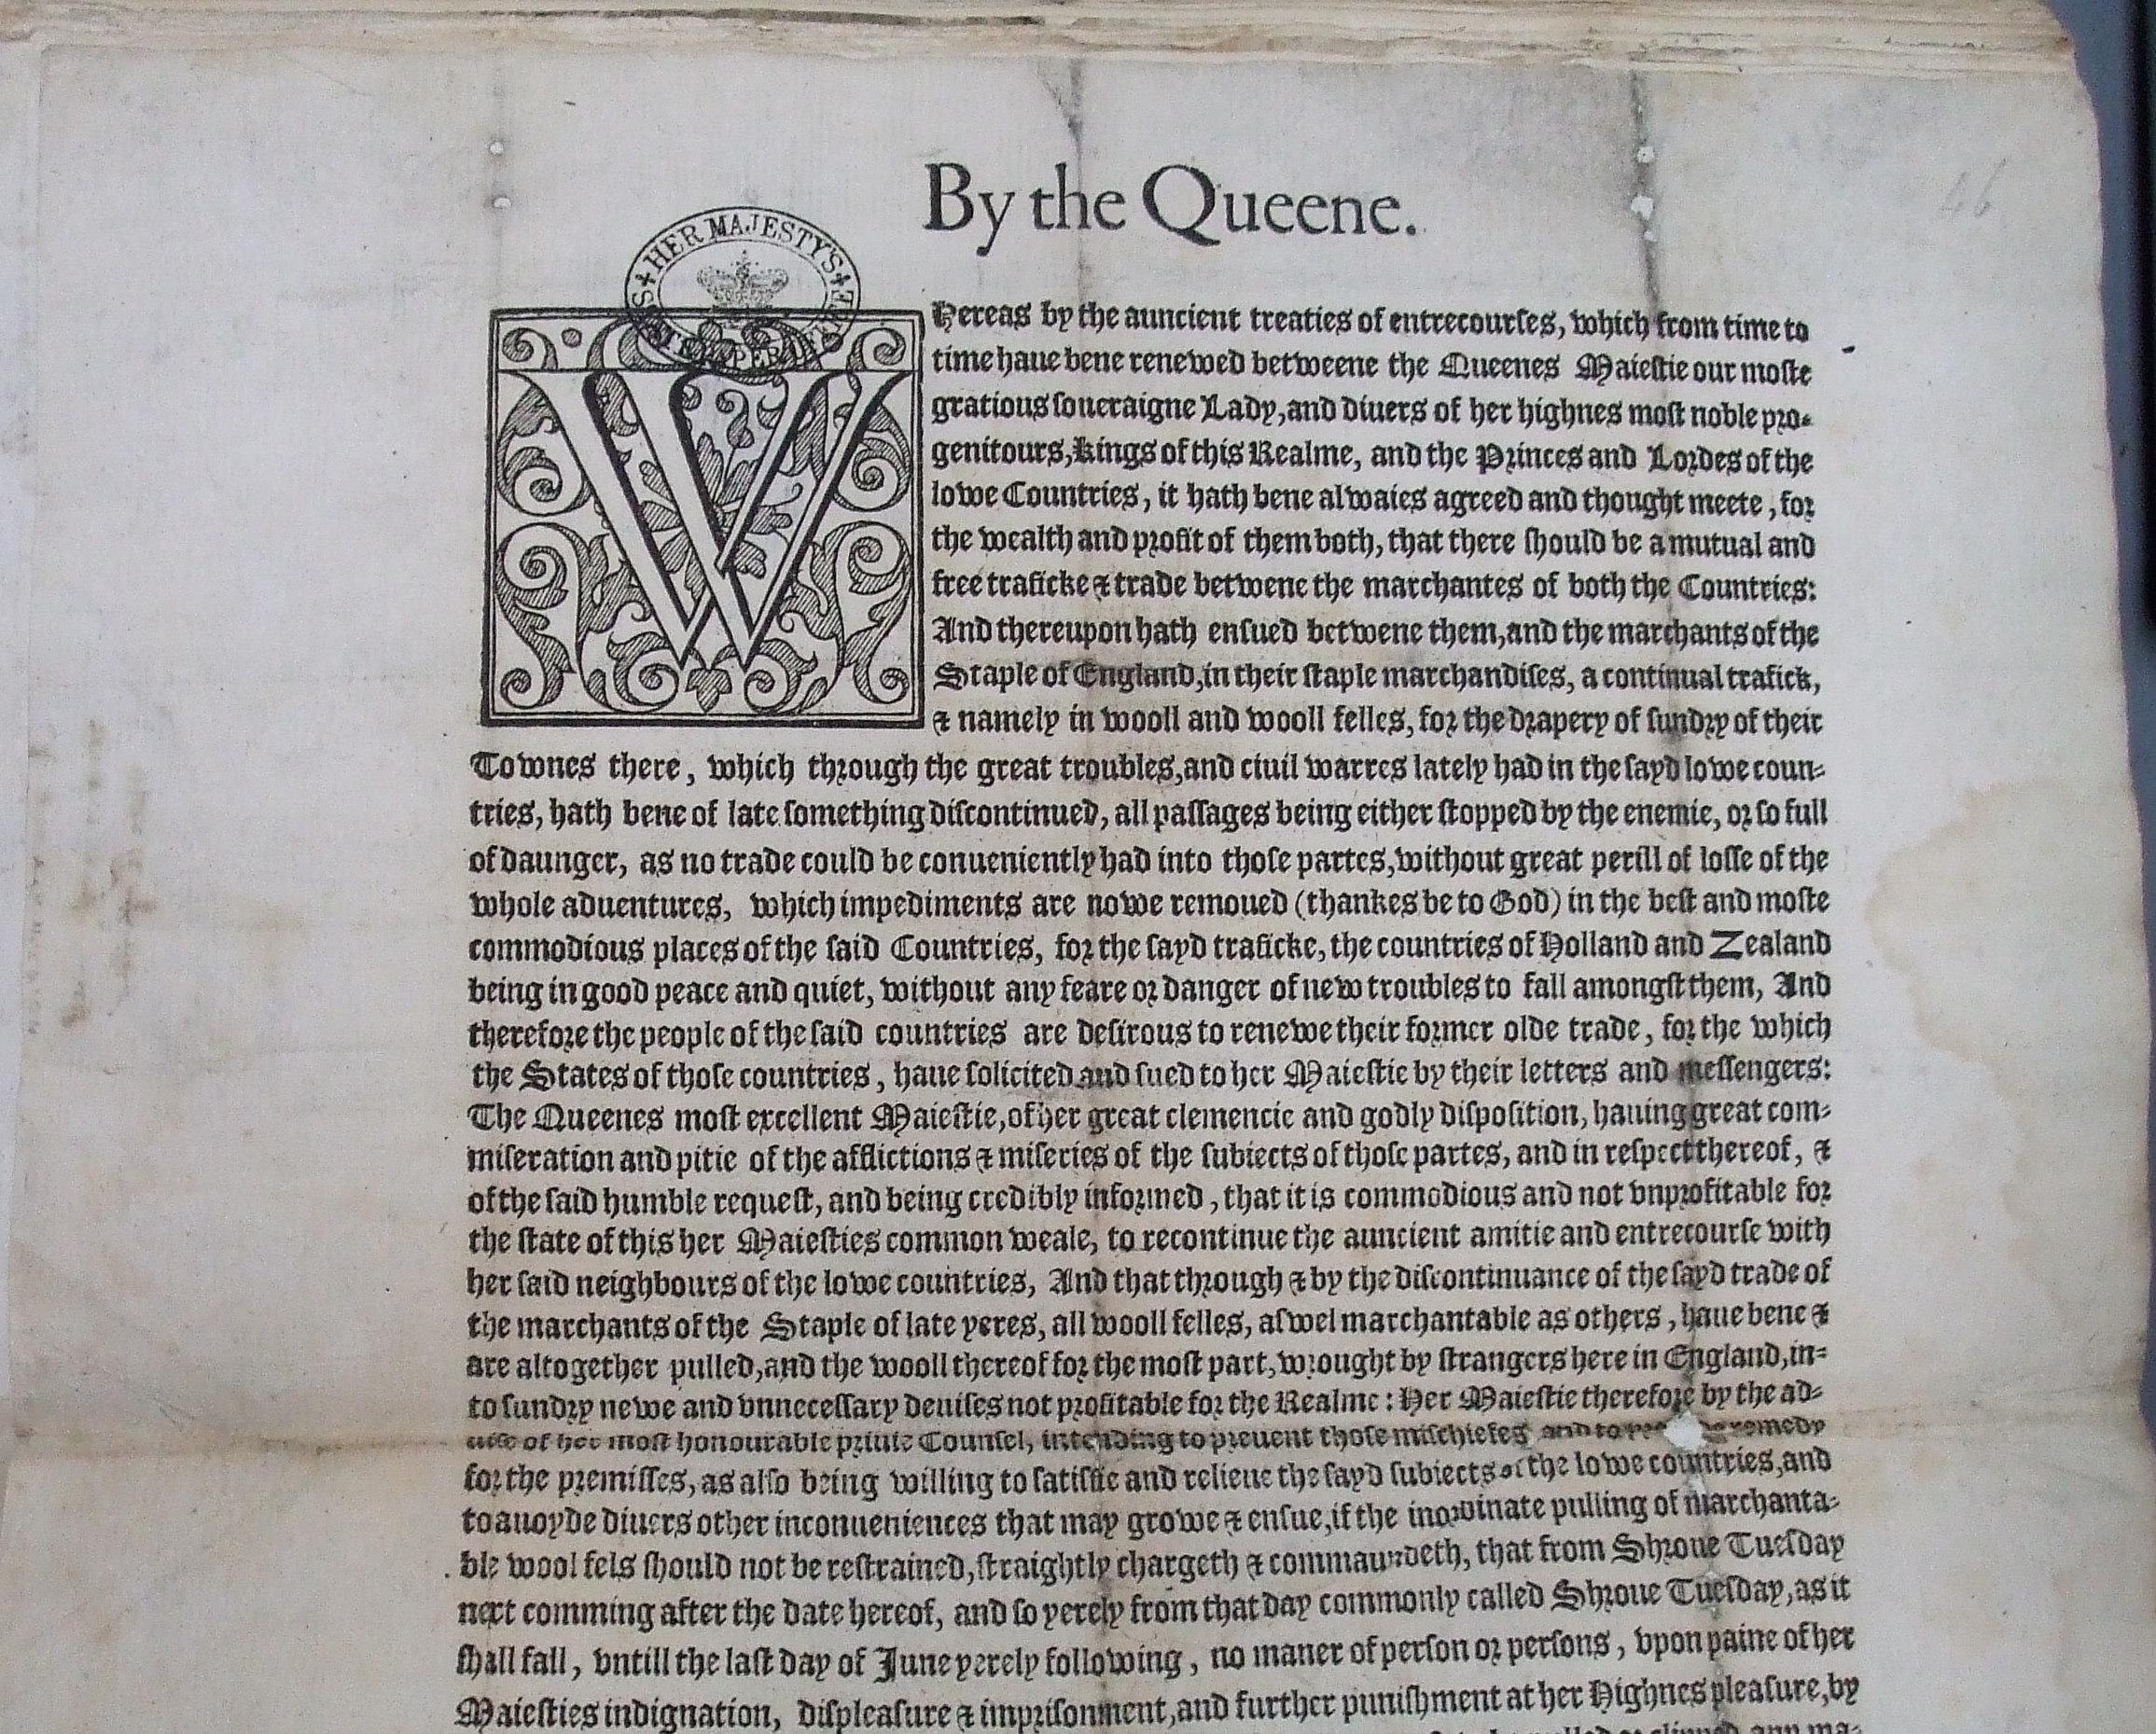 46
By the Queene.
HER MAJESTY'S STATE PAPER OFFICE
WHereas by the auncient treaties of entrecourses, which from time to
time haue bene renewed betweene the Queenes Maiestie our moste
gratious soueraigne Lady, and diuers of her highnes most noble pro-
genitours, kings of this Realme, and the Princes and Lordes of the
lowe Countries, it hath bene alwaies agreed and thought meete, for
the wealth and profit of them both, that there should be a mutual and
free traficke & trade betwene the marchantes of both the Countries:
And thereupon hath ensued betwene them, and the marchants of the
Staple of England, in their staple marchandises, a continual trafick,
& namely in wooll and wooll felles, for the drapery of sundry of their
Townes there, which through the great troubles, and ciuil warres lately had in the sayd lowe coun-
tries, hath bene of late something discontinued, all passages being either stopped by the enemie, or so full
of daunger, as no trade could be conueniently had into those partes, without great perill of losse of the
whole aduentures, which impediments are nowe remoued (thankes be to God) in the best and moste
commodious places of the said Countries, for the sayd traficke, the countries of Holland and Zealand
being in good peace and quiet, without any feare or danger of new troubles to fall amongst them, And
therefore the people of the said countries are desirous to renewe their former olde trade, for the which
the States of those countries, haue solicited and sued to her Maiestie by their letters and messengers:
The Queenes most excellent Maiestie, of her great clemencie and godly disposition, hauing great com-
miseration and pitie of the afflictions & miseries of the subiects of those partes, and in respect thereof, &
of the said humble request, and being credibly informed, that it is commodious and not vnprofitable for
the state of this her Maiesties common weale, to recontinue the auncient amitie and entrecourse with
her said neighbours of the lowe countries, And that through & by the discontinuance of the sayd trade of
the marchants of the Staple of late yeres, all wooll felles, aswel marchantable as others, haue bene &
are altogether pulled, and the wooll thereof for the most part, wrought by strangers here in England, in-
to sundry newe and vnnecessary deuises not profitable for the Realme: Her Maiestie therefore by the ad-
uise of her most honourable priuie Counsel, intending to preuent those mischiefes and to remedy
for the premisses, as also being willing to satisfie and relieue the sayd subiects of the lowe countries, and
to auoyde diuers other inconueniences that may growe & ensue, if the inordinate pulling of marchanta-
ble wool fels should not be restrained, straightly chargeth & commaundeth, that from Shroue Tuesday
next comming after the date hereof, and so yerely from that day commonly called Shroue Tuesday, as it
shall fall, vntill the last day of June yerely following, no maner of person or persons, vpon paine of her
Maiesties indignation, displeasure & imprisonment, and further punishment at her Highnes pleasure, by
pulled or clipped any ma-